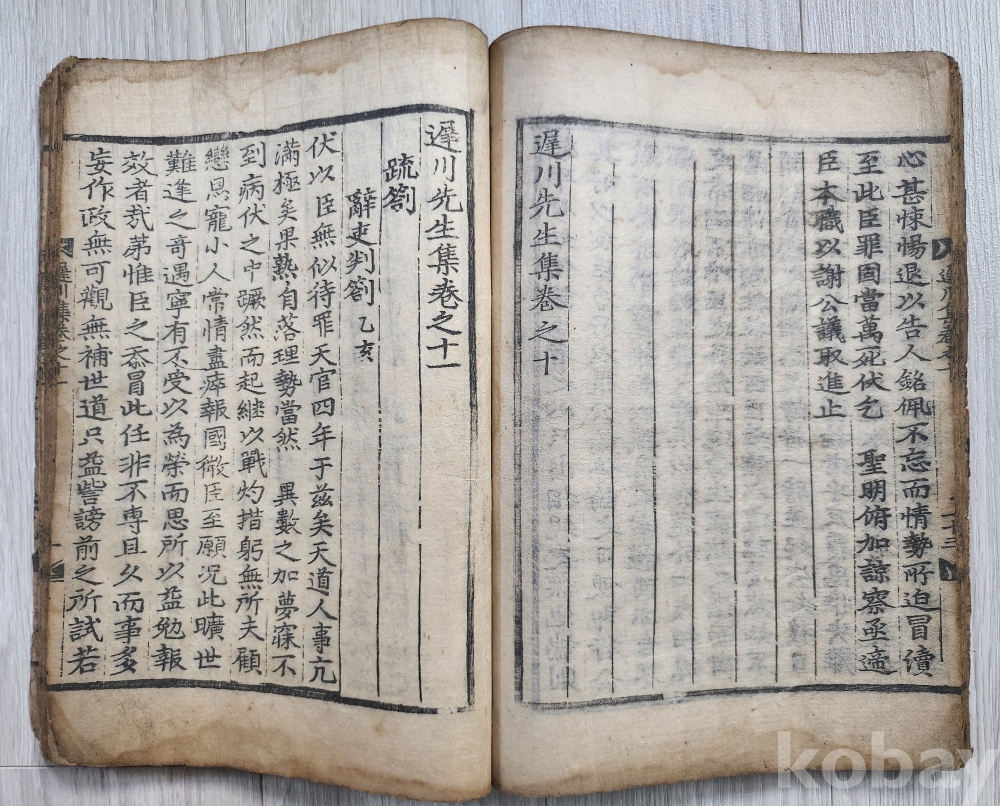 心甚悚惕退以告人銘佩不忘而情勢所迫冒瀆
至此臣罪固當萬死伏乞 聖明俯加諒察亟遞
臣本職以謝公議取進止
遲川先生集卷之十
遲川先生集卷之十一
疏箚
辭吏判箚 乙亥
伏以臣無似待罪天官四年于玆矣天道人事亢
滿極矣果熟自落理勢當然 異數之加夢寐不
到病伏之中蹶然而起繼以戰灼措躬無所夫顧
戀恩寵小人常情盡瘁報國微臣至願况此曠世
難逢之奇遇寧有不受以為榮而思所以益勉報
效者㦲苐惟臣之忝冒此任非不專且久而事多
妄作政無可觀無補世道只益訾謗前之所試若
遲川集卷之十一
kobay